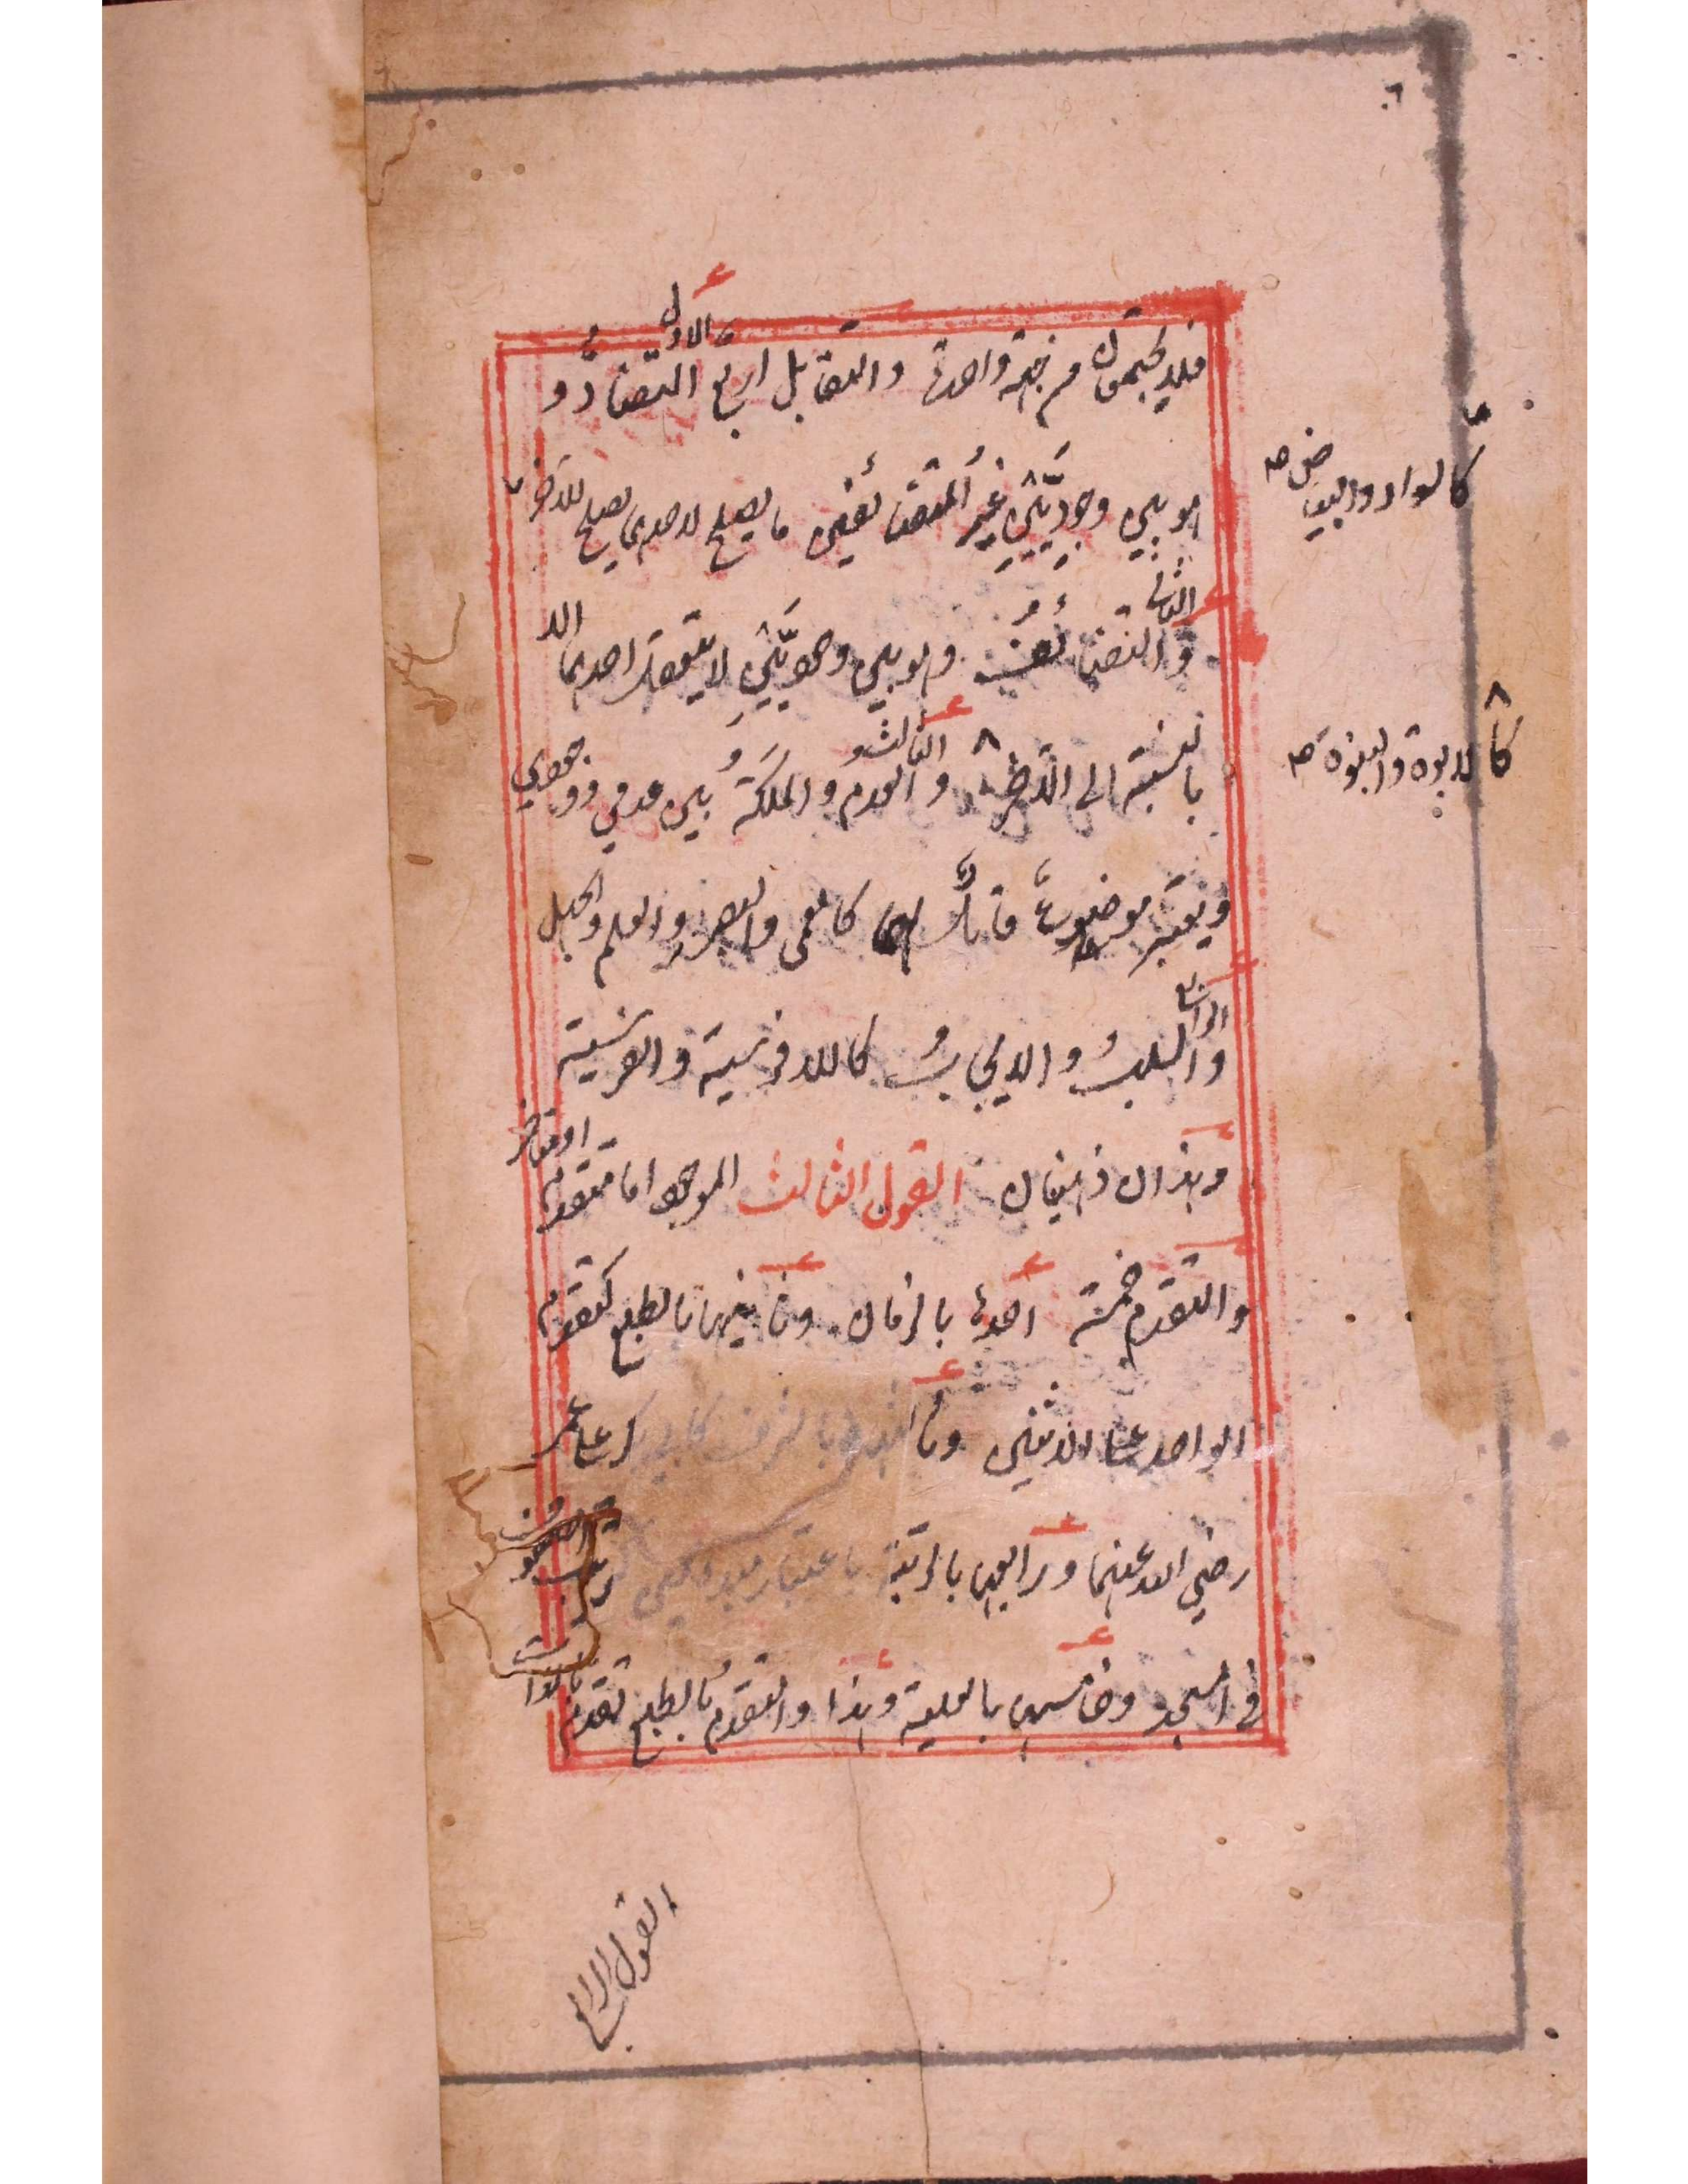 ٦
فلا يجتمعان من جهة واحدة والتقابل اربع الاول التضاد و
هو بين وجوديين غير المتضائفين ما يصلح لاحدهما يصلح للآخر
كالسواد والبياض صح
والثاني التضائف وهو بين وجوديين لا يتعقل احدهما الا
بالنسبة الى الآخر والثالث العدم والملكة بين عدمي ووجودي
كالابوة والبنوة صح
ويعتبر موضوعا قابلا لهما كالعمى والبصر والعلم والجهل
والرابع السلب والايجاب كاللافرسية والفرسية
وهذان ذهنيان القول الثالث الموجود اما متقدم او متأخر
والتقدم خمسة احدها بالزمان وثانيها بالطبع كتقدم
الواحد على الاثنين وثالثها بالشرف كابي بكر على عمر
رضي الله عنهما ورابعها بالرتبة باعتبار مبدء معين
في المسجد وخامسها بالعلية وهذا والتقدم بالطبع تقدم بالذات
القول الرابع